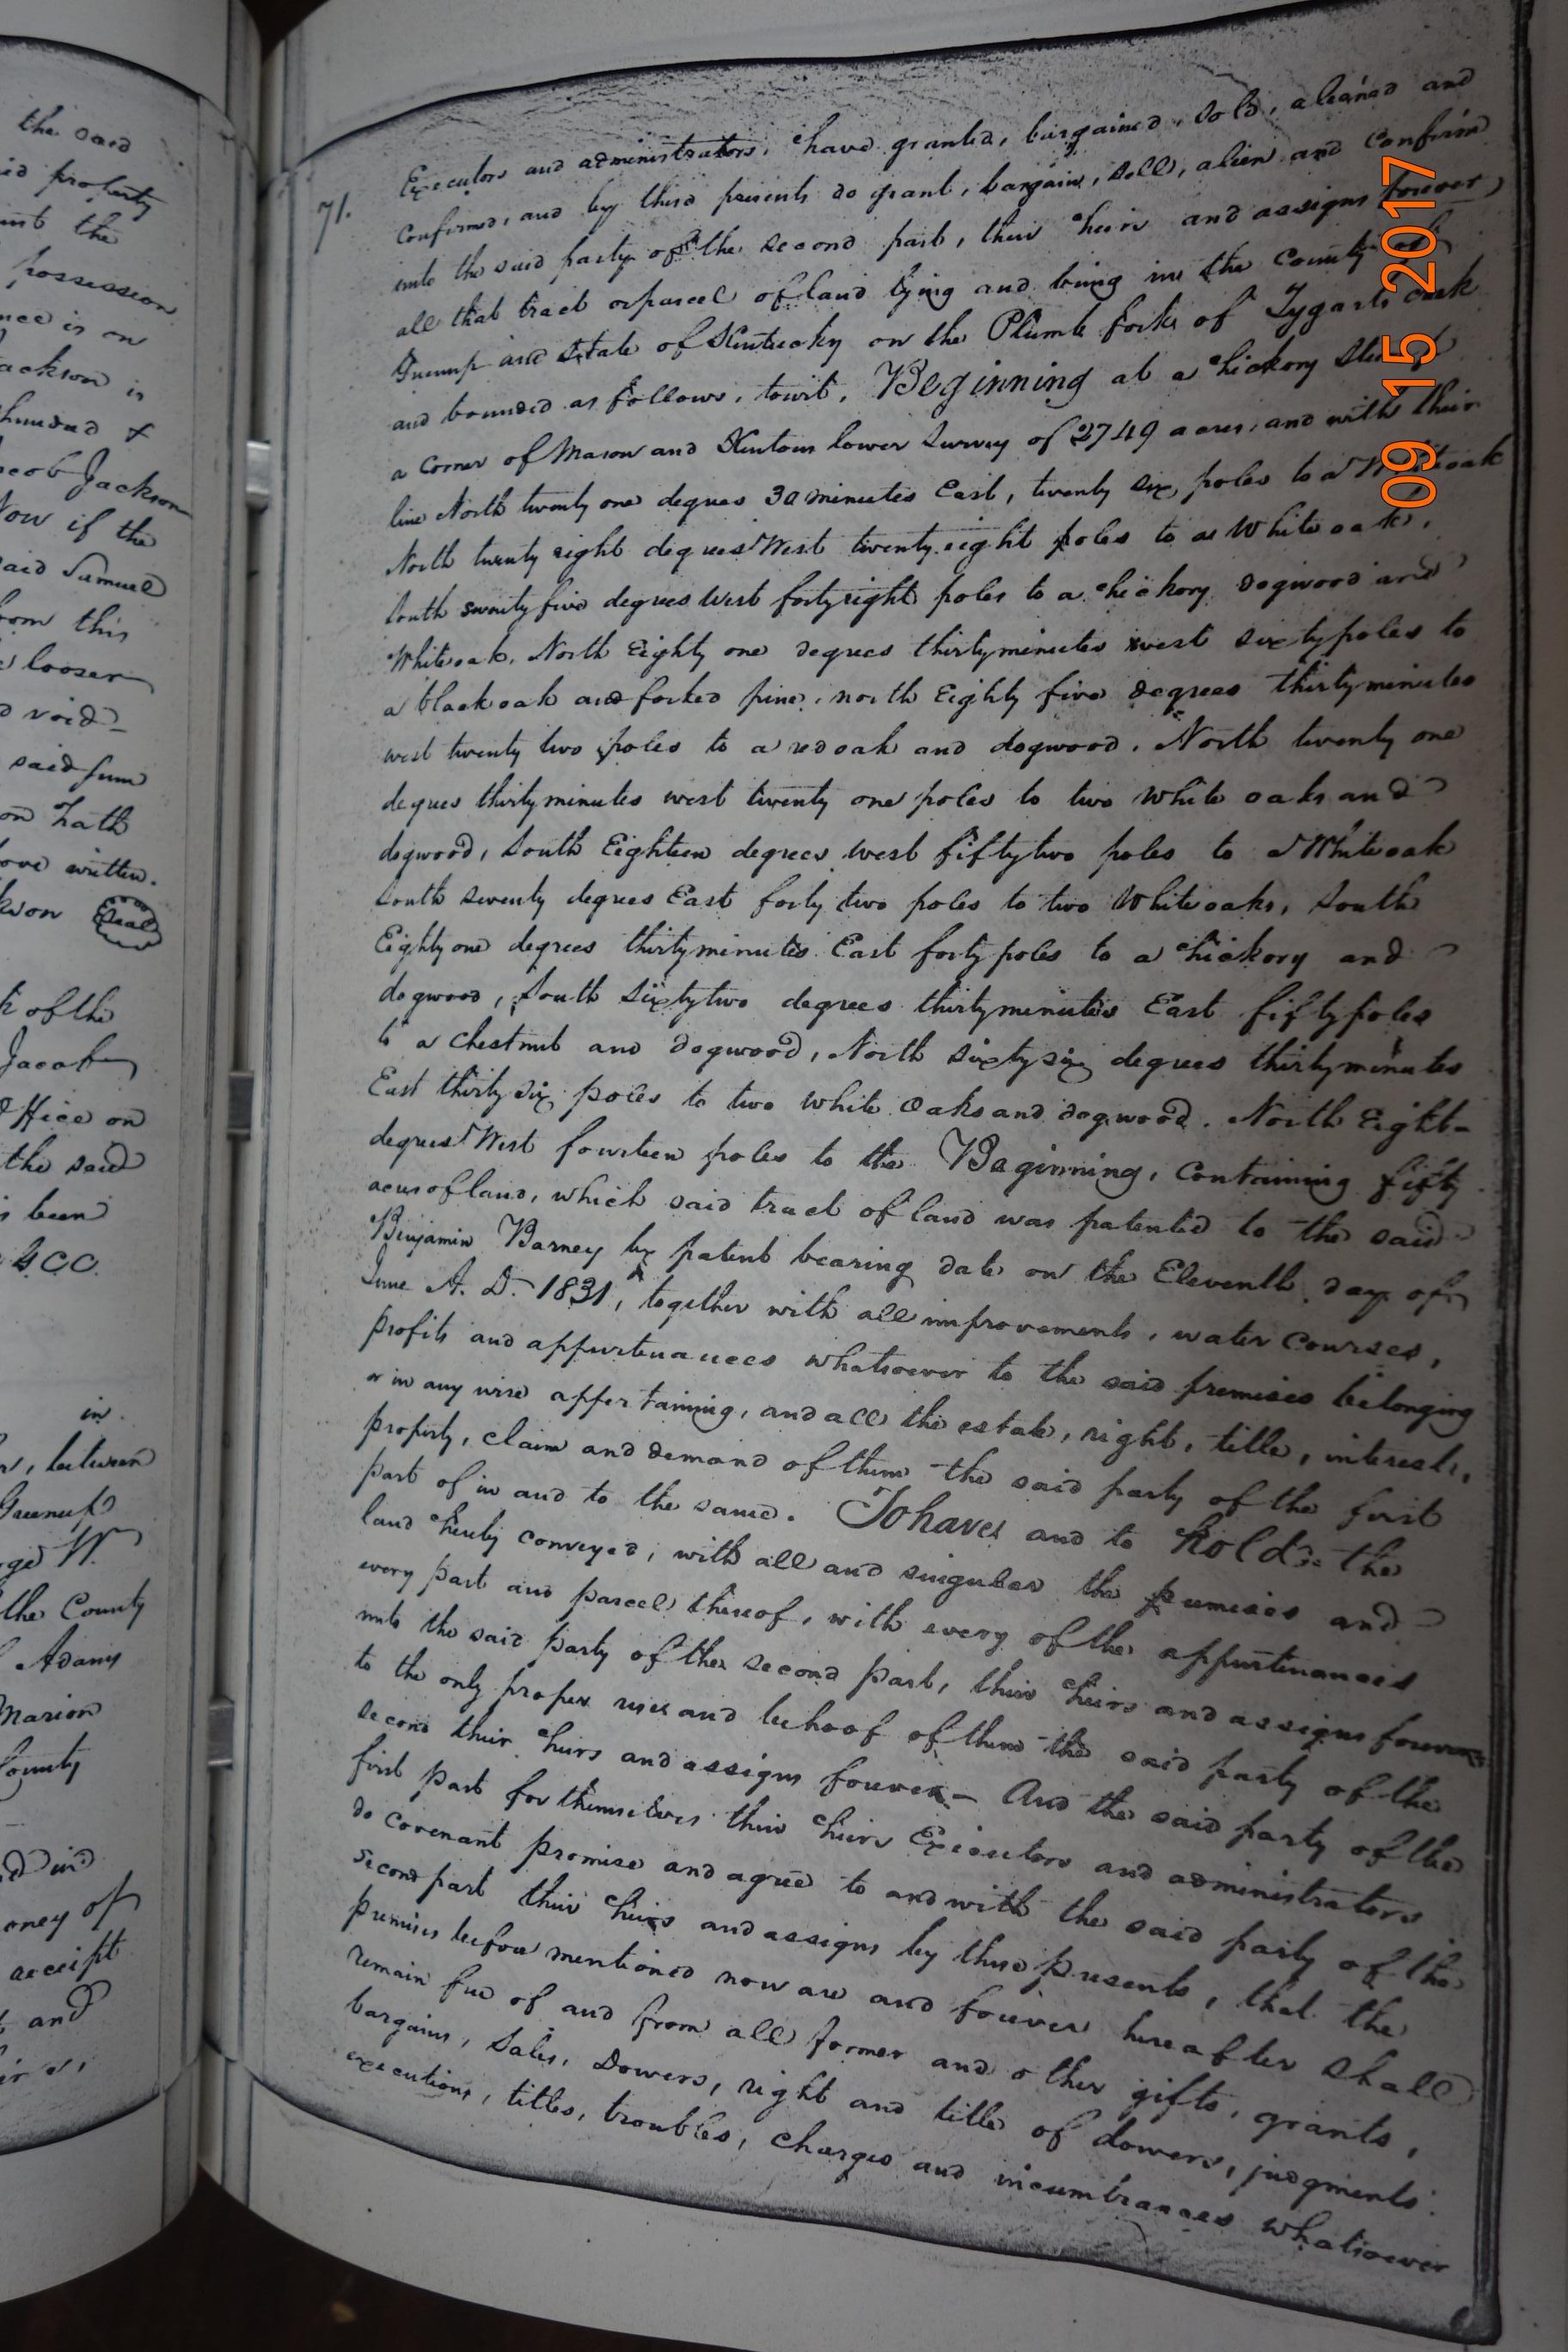 the said
id property
unt the
possession
nce is on
ackson is
hundred &
acob Jackson
Now if the
said Samuel
from this
looser
void
said sum
on hath
above written.
kson Seal
k of the
Jacob
office on
the said
s been
G C C.
in
, between
Greenup
ge W.
the County
Adams
Marion
County
d in
oney of
receipt
and
71.
Executors and administrators, have granted, bargained, sold, aliened and
confirmed, and by these presents do grant, bargain, sell, alien and confirm
unto the said party of the second part, their heirs and assigns forever,
all that tract or parcel of land lying and being in the County of
Greenup and State of Kentucky on the Plumb fork of Tygarts creek
and bounded as follows, towit, Beginning at a hickory
a corner of Mason and Kentons lower survey of 2749 acres, and with their
line North twenty one degrees 30 minutes East, twenty six poles to a White oak
North twenty eight degrees West twenty eight poles to a White oak,
South seventy five degrees West forty eight poles to a hickory dogwood and
White oak, North Eighty one degrees thirty minutes west sixty poles to
a black oak and forked pine, north Eighty five degrees thirty minutes
west twenty two poles to a red oak and dogwood, North twenty one
degrees thirty minutes west twenty one poles to two White oaks and
dogwood, South Eighteen degrees west fifty two poles to a White oak
South seventy degrees East forty two poles to two White oaks, South
Eighty one degrees thirty minutes East forty poles to a hickory and
dogwood, South Sixty two degrees thirty minutes East fifty poles
to a chestnut and dogwood, North sixty six degrees thirty minutes
East thirty six poles to two white oaks and dogwood. North Eight-
degrees West fourteen poles to the Beginning, containing fifty
acres of land, which said tract of land was patented to the said
Benjamin Barney by patent bearing date on the Eleventh day of
June A. D. 1831, together with all improvements, water courses,
profits and appurtenances whatsoever to the said premises belonging
or in any wise appertaining, and all the estate, right, title, interest,
property, claim and demand of them the said party of the first
part of in and to the same. To have and to hold the
land hereby conveyed, with all and singular the premises and
every part and parcel thereof, with every of the appurtenances
unto the said party of the second part, their heirs and assigns forever
to the only proper use and behoof of them the said party of the
second their heirs and assigns forever- And the said party of the
first part for themselves their heirs Executors and administrators
do covenant promise and agree to and with the said party of the
second part their heirs and assigns by these presents, that the
premises before mentioned now are and forever hereafter shall
remain free of and from all former and other gifts, grants,
bargains, Sales, Dowers, right and title of dowers, judgments
executions, titles, troubles, charges and incumbrances whatsoever
09 15 2017